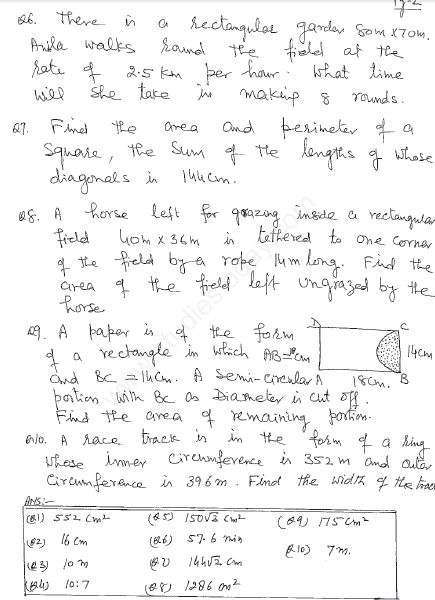 Pg-2
Q6. There is a rectangular garden 80m x 70m.
Anika walks round the field at the
rate of 2.5 Km per hour. What time
will she take in making 8 rounds.
Q7. Find the area and perimeter of a
square, the sum of the lengths of whose
diagonals is 144cm.
Q8. A horse left for grazing inside a rectangular
field 40m x 36m is tethered to one corner
of the field by a rope 14m long. Find the
area of the field left ungrazed by the
horse
Q9. A paper is of the form
of a rectangle in which AB=18cm
and BC = 14cm. A semi-circular
portion with BC as Diameter is cut off.
Find the area of remaining portion.
D C
14cm
A 18cm. B
Q10. A race track is in the form of a ring
whose inner circumference is 352 m and outer
circumference is 396m. Find the width of the track
ANS:-
(Q1) 552 cm² (Q5) 150√3 cm² (Q9) 175cm²
(Q2) 16 cm (Q6) 57.6 min Q10) 7m.
(Q3) 10 m (Q7) 144√2 cm
(Q4) 10:7 (Q8) 1286 m²